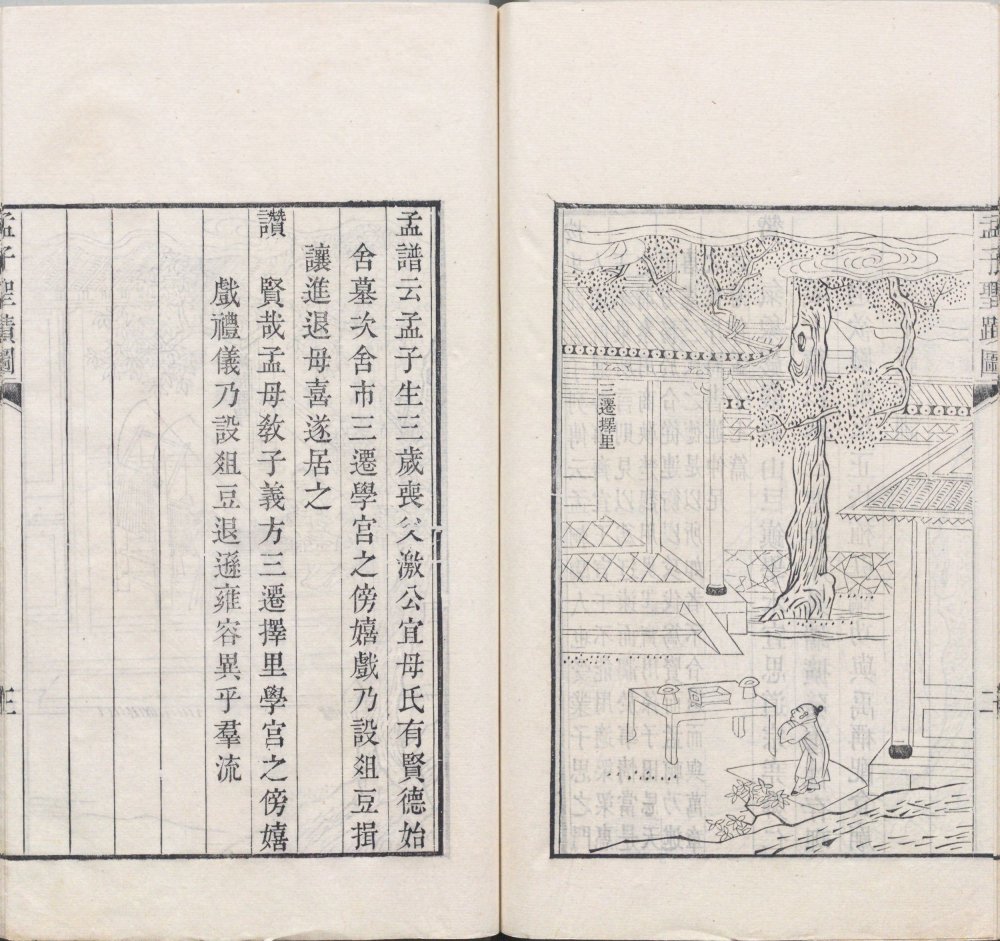 三遷擇里
孟子聖蹟圖
二
孟譜云孟子生三歲喪父激公宜母氏有賢德始
舍墓次舍市三遷學宮之傍嬉戲乃設爼豆揖
讓進退母喜遂居之
讚
賢哉孟母敎子義方三遷擇里學宮之傍嬉
戲禮儀乃設爼豆退遜雍容異乎羣流
孟子聖蹟圖